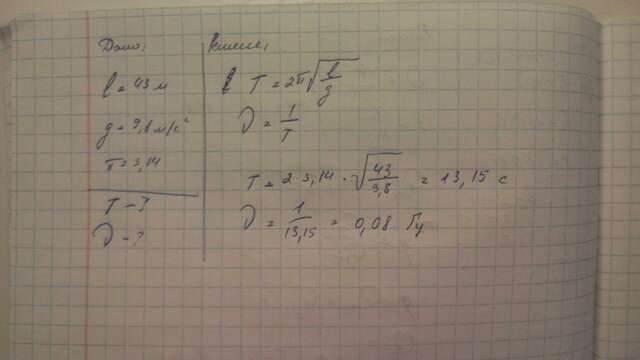 Дано:
l = 43 м
g = 9,8 м/с²
π = 3,14
T - ?
ν - ?
Решение:
T = 2π√(l/g)
ν = 1/T
T = 2 3,14 · √(43/9,8) = 13,15 с
ν = 1/13,15 = 0,08 Гц